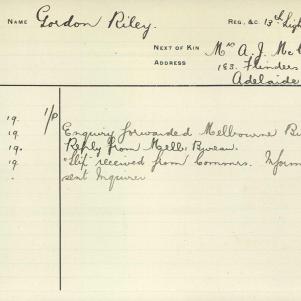 NAME Gordon Riley. REG. &C. 13th Ligh
NEXT OF KIN Mrs A. J. Mc
ADDRESS 183. Flinders
Adelaide
19. 1/P Enquiry forwarded Melbourne B
19. Reply from Melb: Bureau.
19. "Slip" received from Commrs. Inform
sent Inquirer